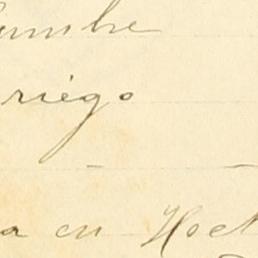 umbre
riego
a en Hoct